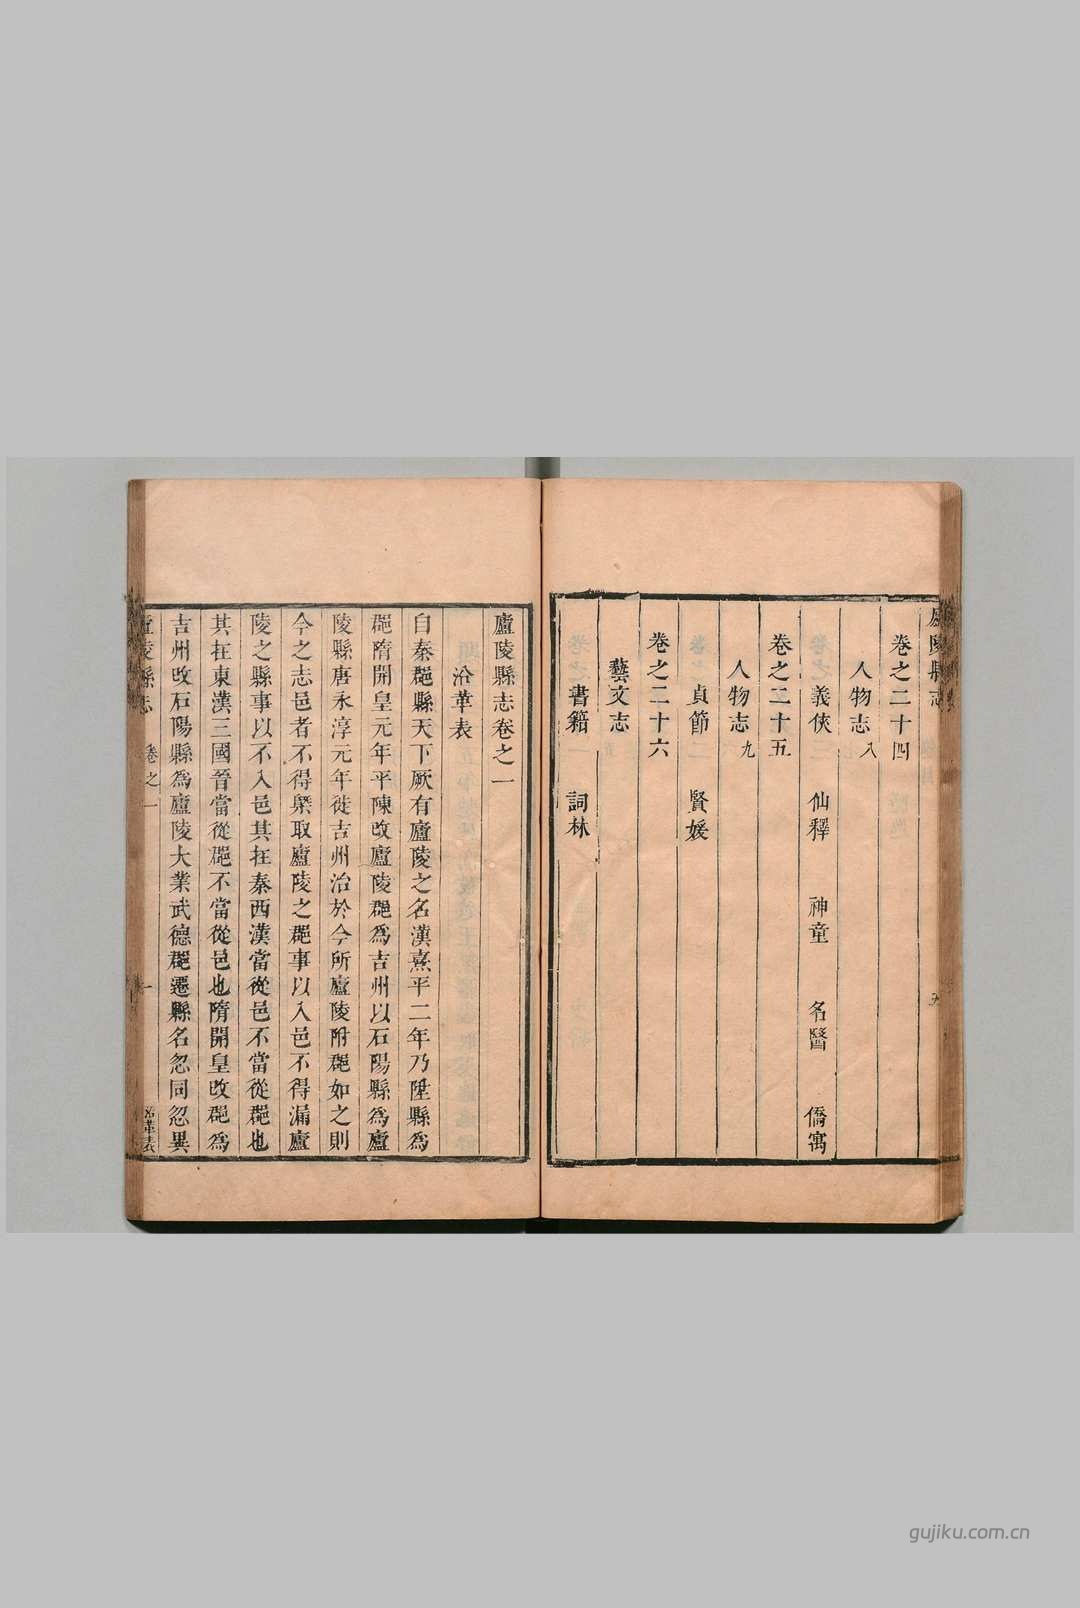 廬陵縣志
卷之二十四
人物志 八
義俠 仙釋 神童 名醫 僑寓
卷之二十五
人物志 九
貞節 賢媛
卷之二十六
藝文志
書籍 詞林
廬陵縣志卷之一
沿革表
自秦郡縣天下厥有廬陵之名漢熹平二年乃陞縣為
郡隋開皇元年平陳改廬陵郡為吉州以石陽縣為廬
陵縣唐永淳元年徙吉州治於今所廬陵附郡如之則
今之志邑者不得槩取廬陵之郡事以入邑不得漏廬
陵之縣事以不入邑其在秦西漢當從邑不當從郡也
其在東漢三國晉當從郡不當從邑也隋開皇改郡為
吉州改石陽縣為廬陵大業武德郡遷縣名忽同忽異
廬陵縣志 卷之一 一 沿革表
gujiku.com.cn